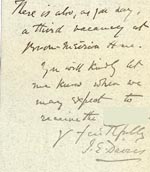 There is also, as you say,
a third vacancy at
Home.
You will kindly let
me know when we
may expect to
receive the
Yrs faithfully
J E Davies